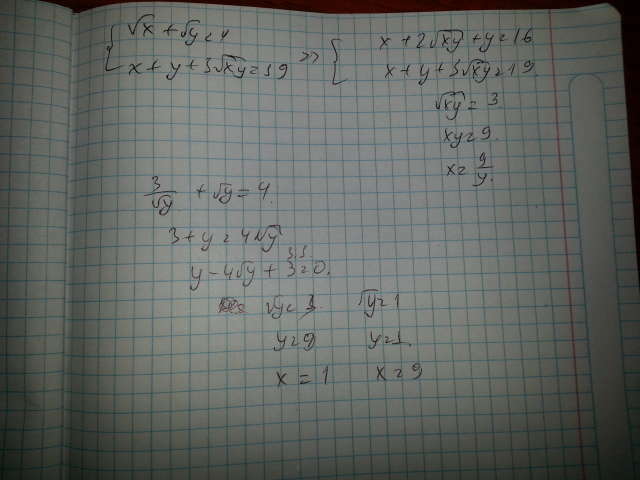 { √x + √y = 4
x + y + 3√xy = 19 => {
x + 2√xy + y = 16
x + y + 3√xy = 19
√xy = 3
xy = 9
x = 9/y
3/√y + √y = 4
3 + y = 4√y
y - 4√y + 3 = 0
√y = 3 √y = 1
y = 9 y = 1
x = 1 x = 9